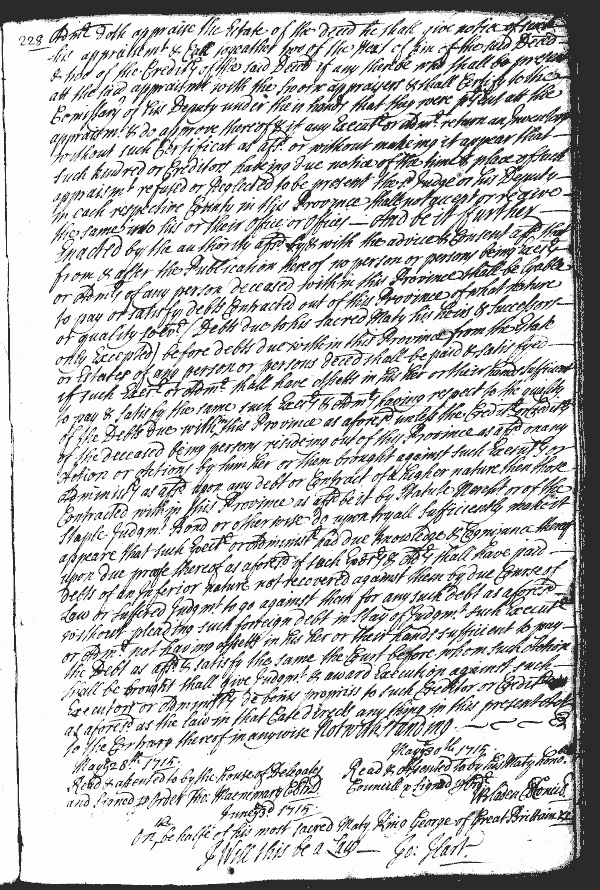 228 Admr doth appraise the Estate of the deced he shall give notice of such
his appraismt & Call wheather two of the next of kin of the said Deced
& two of the Creditrs of the said Deced if any there be who shall be present
att the said appraismt with the sworn appraisers & shall Certify to the
Comissary or his Deputy under their hands that they were present att the
appraismt & do approve thereof & if any Executr or Admr return an Inventory
without such Certificat as afd or without making it appear that
such kindred or Creditors having due notice of the time & place of such
appraismt refused or neglected to be present the sd Judge or his Deputy
in each respective County in this Province shall not accept or receive
the same into his or their office or offices — And be it further
Enacted by the authority afd by & with the advice & Consent afd that
from & after the Publication hereof no person or persons being Executrs
or Admrs of any person deceased within this Province shall be liable
to pay or satisfy debts Contracted out of this Province of what nature
or quality soever (Debts due to his sacred Maty his heirs & successors
only Excepted) before debts due within this Province from the Estate
or Estates of any person or persons deced shall be paid & satisfyed
if such Exectr or Admr shall have assetts in his her or their hands sufficient
to pay & satisfy the same such Exectr & Admrs having respect to the quality
of the Debts due within this Province as aforesd unless the Creditor or Creditrs
of the deceased being persons resideing out of this Province as afd on any
Action or Actions by him her or them brought against such Executr or
Administr as afd upon any debt or Contract of a higher nature then those
Contracted within this Province as afd be it by Statute Mercht or of the
Staple Judgmt Bond or otherwise do upon tryall sufficiently make it
appeare that such Exectr or Administr had due knowledge & Cognizance thereof
upon due proofe thereof as aforesd if such Exectr & Admr shall have paid
Debts of an Inferior nature not recovered against them by due Course of
Law or suffered Judgmt to go against them for any such debt as aforesd
without pleading such foreign debt in stay of Judgmt such Executr
or Admr not having assetts in his her or their hands sufficient to pay
the Debt as afd & satisfy the same the Court before whom such Action
shall be brought shall give Judgmt & award Execution against such
Executors or Administrs de bonis propriis to such Creditor or Creditors
as aforesd as the law in that Case directs any thing in this present Act
to the Contrary thereof in any wise Notwithstanding
May 28th 1715. May 30th 1715
Read & assented to by the House of Delegates Read & assented to by his Maty hono.
and signed p order Tho: Macnemara Cl h D Councill & signed p ordr
June 3d 1715
On the behalfe of his most sacred Maty King George of Great Brittain &c
I Will this be a Law — Jo: Hart.